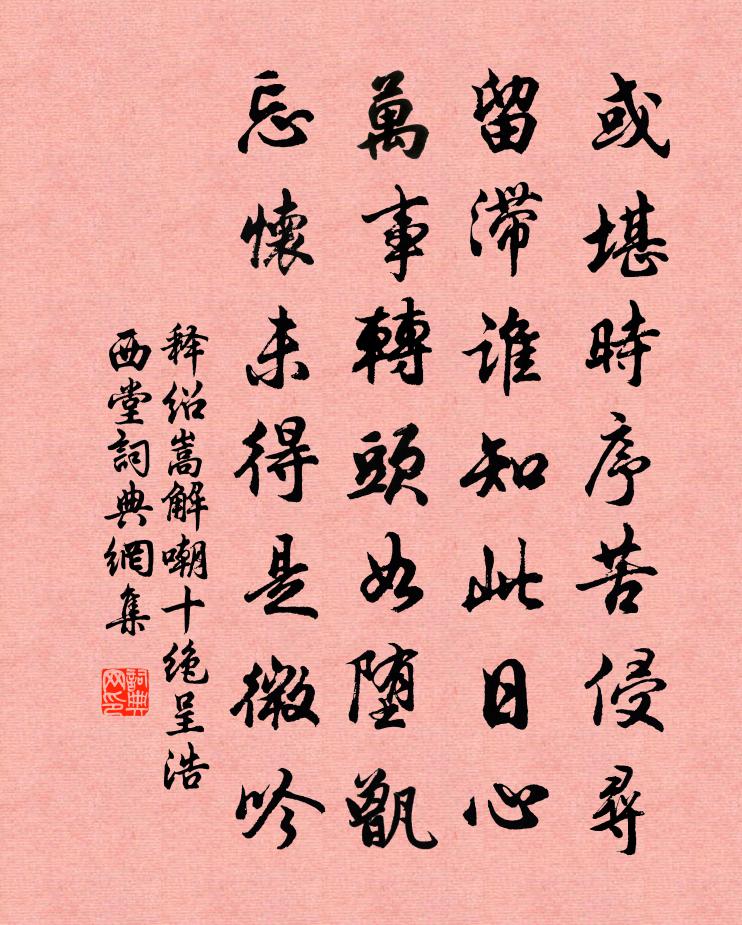 或堪時序苦侵尋
留滯誰知此日心
萬事轉頭如堕甑
忘懷未得是微吟
释绍嵩解嘲十绝呈浩
西堂詞典網集
詞典
网印